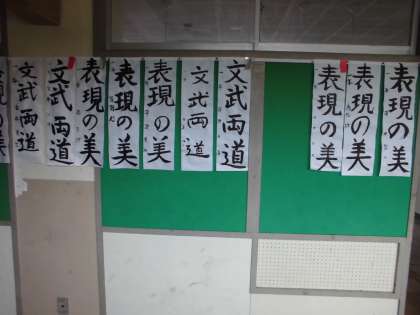 表現の美
表現の美
表現の美
文武両道
文武両道
表現の美
表現の美
表現の美
文武両道
文武両道
現の美